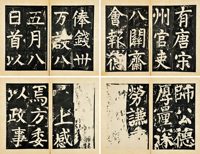 有唐宋
州官吏
八關齋
會報德
俸錢卅
万設八
五月八
日首以
師公德
厚量深
勞謙
上感
焉方委
以政事